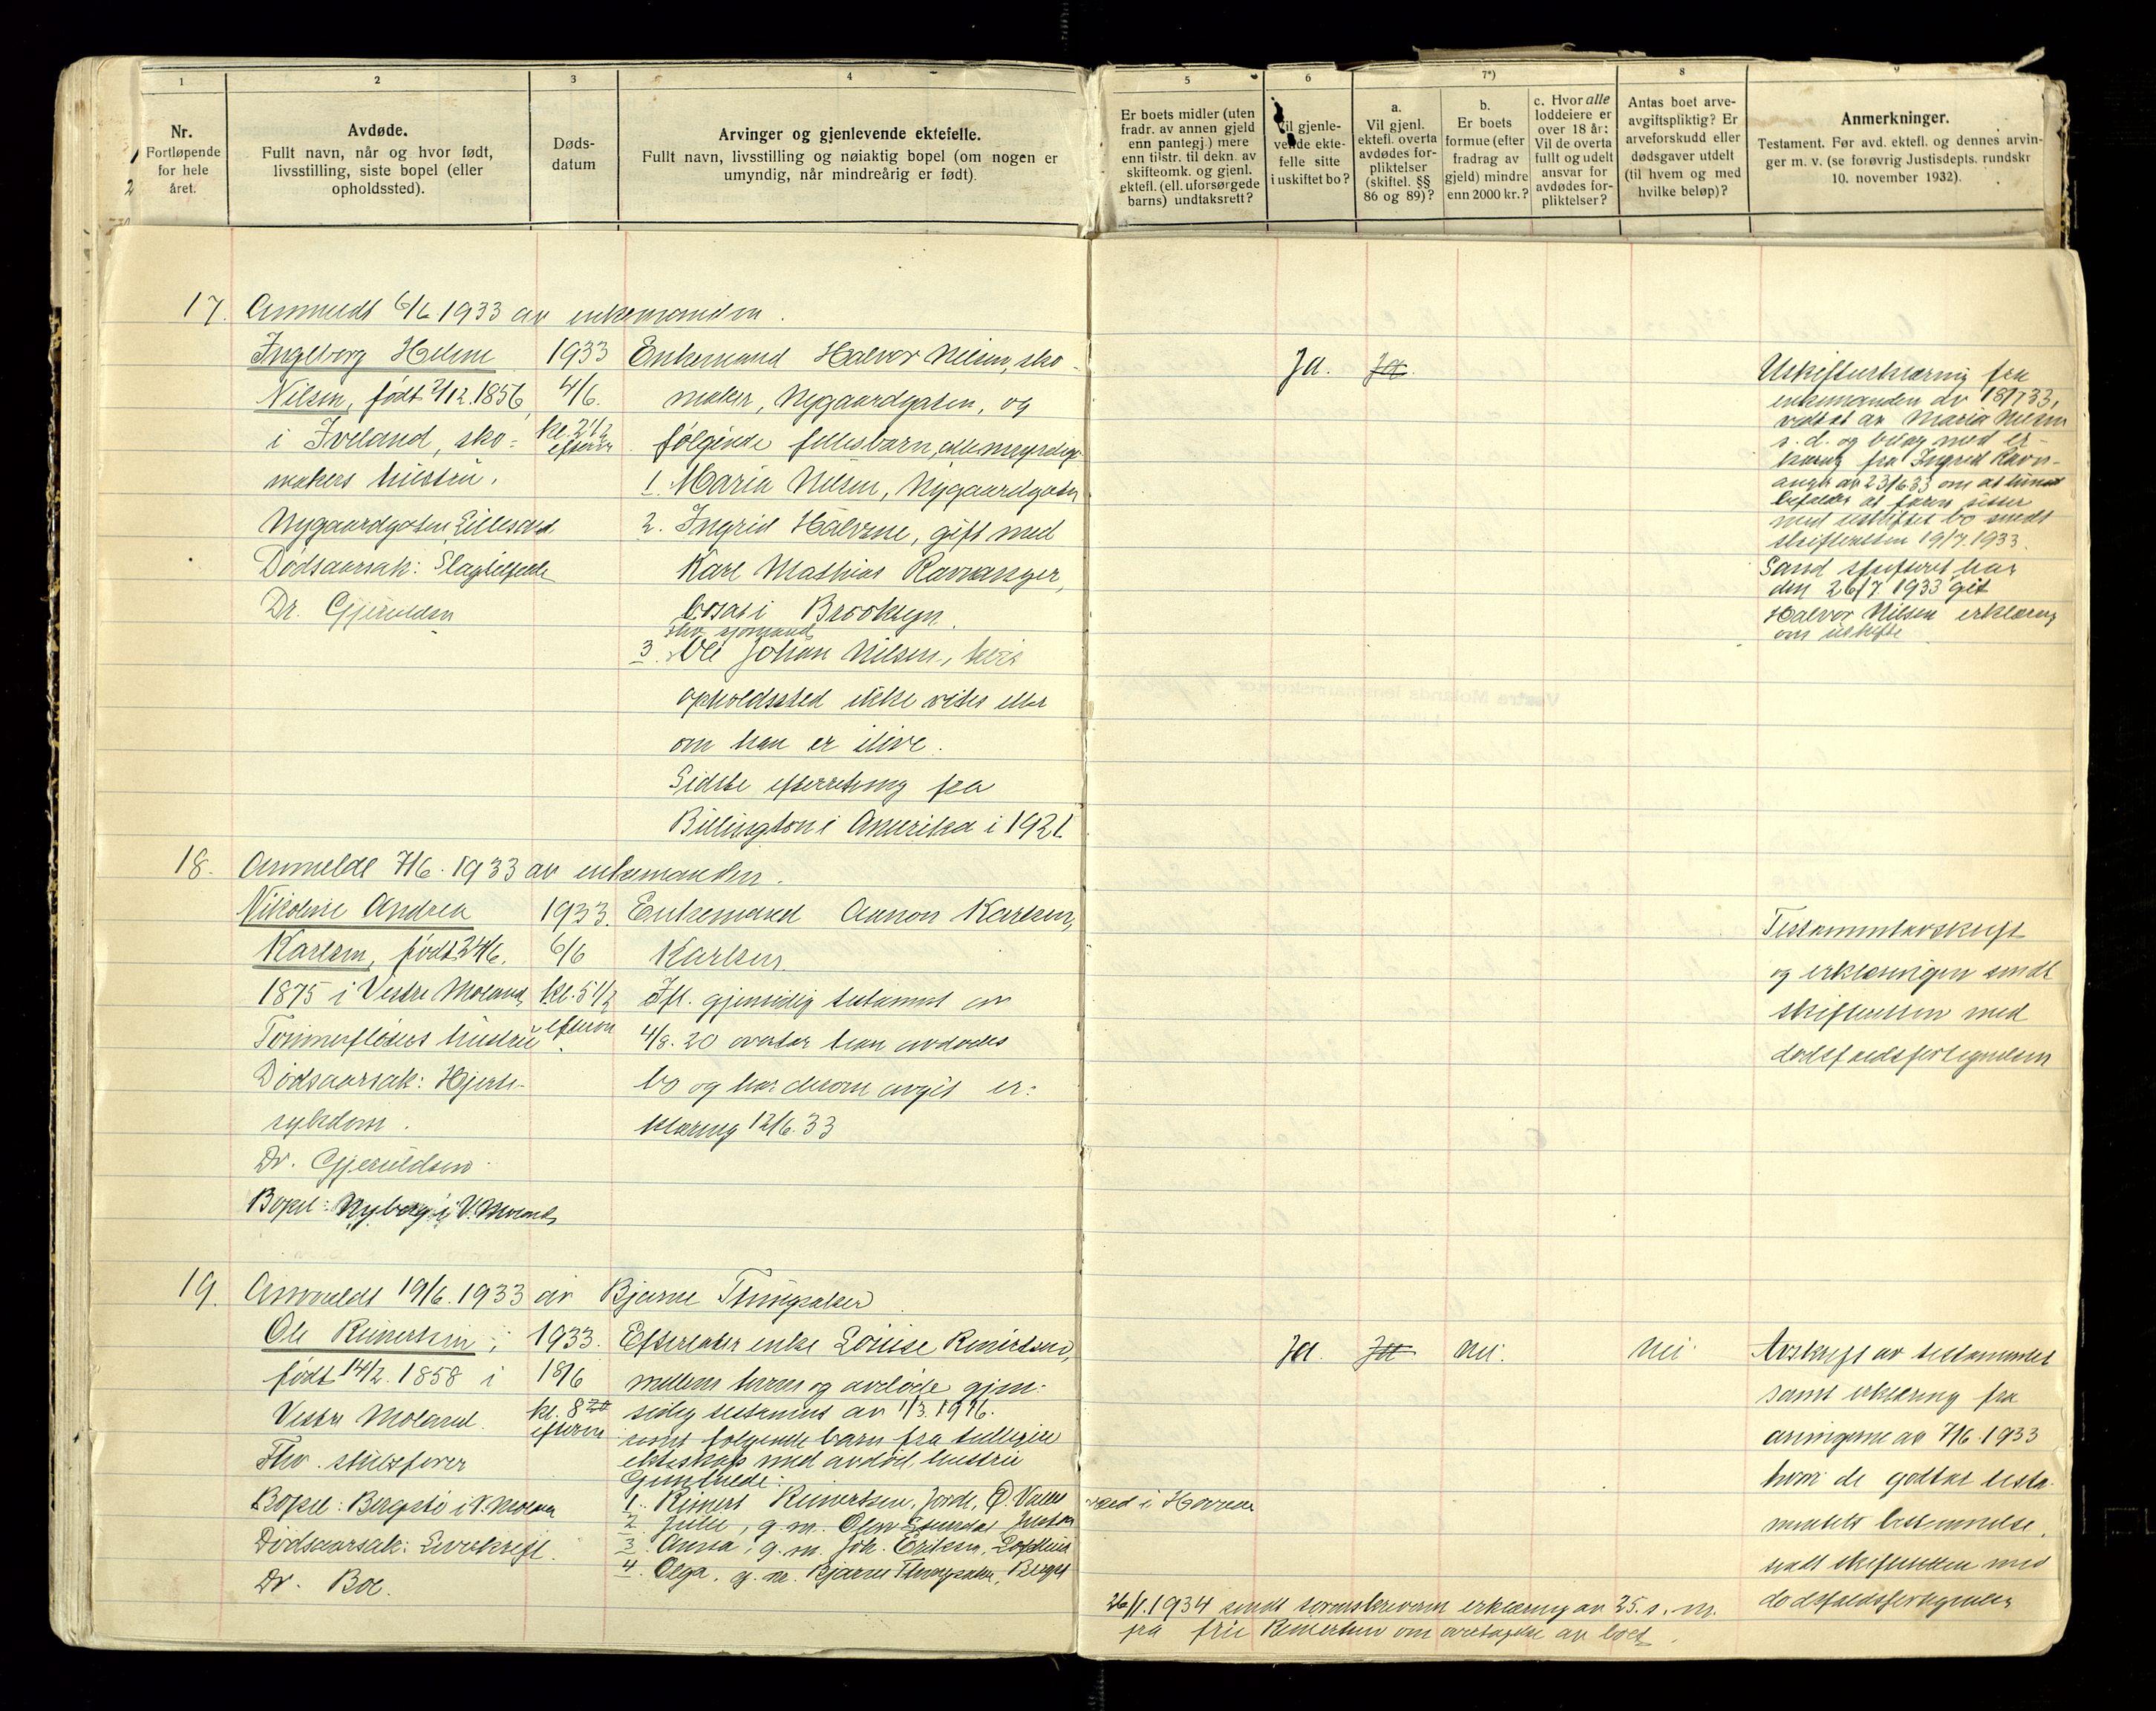 1
Nr.
Fortløpende
for hele
året.
2
Avdøde.
Fullt navn, når og hvor født,
livsstilling, siste bopel (eller
opholdssted).
3
Døds-
datum
4
Arvinger og gjenlevende ektefelle.
Fullt navn, livsstilling og nøiaktig bopel (om nogen er
umyndig, når mindreårig er født).
5
Er boets midler (uten
fradr. av annen gjeld
enn pantegj.) mere
enn tilstr. til dekn. av
skifteomk. og gjenl.
ektef. (ell. uforsørgede
barns) undtaksrett?
6
Vil gjenle-
vende ekte-
felle sitte
i uskiftet bo?
7*)
a.
Vil gjenl.
ektefl. overta
avdødes for-
pliktelser
(skiftel. §§
86 og 89)?
b.
Er boets
formue (efter
fradrag av
gjeld) mindre
enn 2000 kr.?
c. Hvor alle
loddeiere er
over 18 år:
Vil de overta
fullt og udelt
ansvar for
avdødes for-
pliktelser?
8
Antas boet arve-
avgiftspliktig? Er
arveforskudd eller
dødsgaver utdelt
(til hvem og med
hvilke beløp)?
9
Anmerkninger.
Testament. Før avd. ektefl. og dennes arvin-
ger m. v. (se forøvrig Justisdepts. rundskr
10. november 1932).
17. Anmeldt 6/6 1933 av enkemanden.
Ingeborg Helene
Nilsen, født 2/12.1856
i Iveland, sko-
makers hustru.
Nygaardgaten, Lillesand.
Dødsaarsak: Slagtilfelde
Dr. Gjeruldsen
1933
4/6.
kl. 2 1/2
efterm
Enkemand Halvor Nilsen, sko-
maker, Nygaardgaten, og
følgende fellesbarn, alle myndige
1. Maria Nilsen, Nygaardgaten
2. Ingrid Halvine, gift med
Karl Mathias Ravnanger,
bosat i Brooklyn.
fhv sjømand
3. Ole Johan Nilsen, hvis
opholdssted ikke vites eller
om han er ilive.
Sidste efterretning fra
Billington i Amerika i 1921.
Ja. Ja.
Uskifteerklæring fra
enkemanden av 18/7 33,
vedtat av Maria Nilsen
s. d. og bilag med er-
klæring fra Ingrid Ravn-
anger av 23/6 33 om at hun
at faren sitter
med uskiftet bo sendt
skifteretten 19/7.1933.
Sand skifterett har
den 26/7 1933 git
Halvor Nilsen erklæring
om uskifte
18. Anmeldt 7/6. 1933 av enkemanden.
Nikoline Andrea
Karlsen, født 24/6.
1875 i Vestre Moland,
Tømmerfløters hustru
Dødsaarsak: Hjerte-
sykdom.
Dr. Gjeruldsen
Bopel: Nyberg i V. Moland
1933.
6/6
kl. 5 1/2
efterm
Enkemand Aanon Karlsen,
Karlsen.
Ifl. gjensidig testament av
4/8. 20 overtar han avdødes
bo og har desom avgit er-
klæring 12/6. 33
Testamentavskrift
og erklæringen sendt
skifteretten med
dødsfaldsfortegnelsen
19. Anmeldt 19/6. 1933 av Bjarne Thingsaker
Ole Reinertsen,
født 14/2. 1858 i
Vestre Moland.
Fhv. skibsfører
Bopel: Bergstø i V. Moland
Dødsaarsak: Leverkreft.
Dr. Boe.
1933.
18/6
kl. 8 20
efterm
Efterlater enke Louise Reinertsen,
mellem hvem og avdøde gjen-
sidig testament av 1/3. 1916.
samt følgende barn fra tidligere
ekteskap med avdød hustru
Gunhilde:
1. Reinert Reinertsen, Jorde, Ø. Valle
2. Julie, g. m. Olav
3. Anna, g. m. Joh. Eriksen,
4. Olga, g. m. Bjarne Thingsaker, Bergst
Ja. Ja nei. nei.
26/1.1934 sendt erklæring av 25. s. m.
fra fru Reinertsen om overtagelse av boet.
Avskrift av testamentet
samt erklæring fra
arvingerne av 7/6. 1933
hvori de godtar testa-
mentets bestemmelse,
sendt skifteretten med
dødsfaldsfortegnelsen